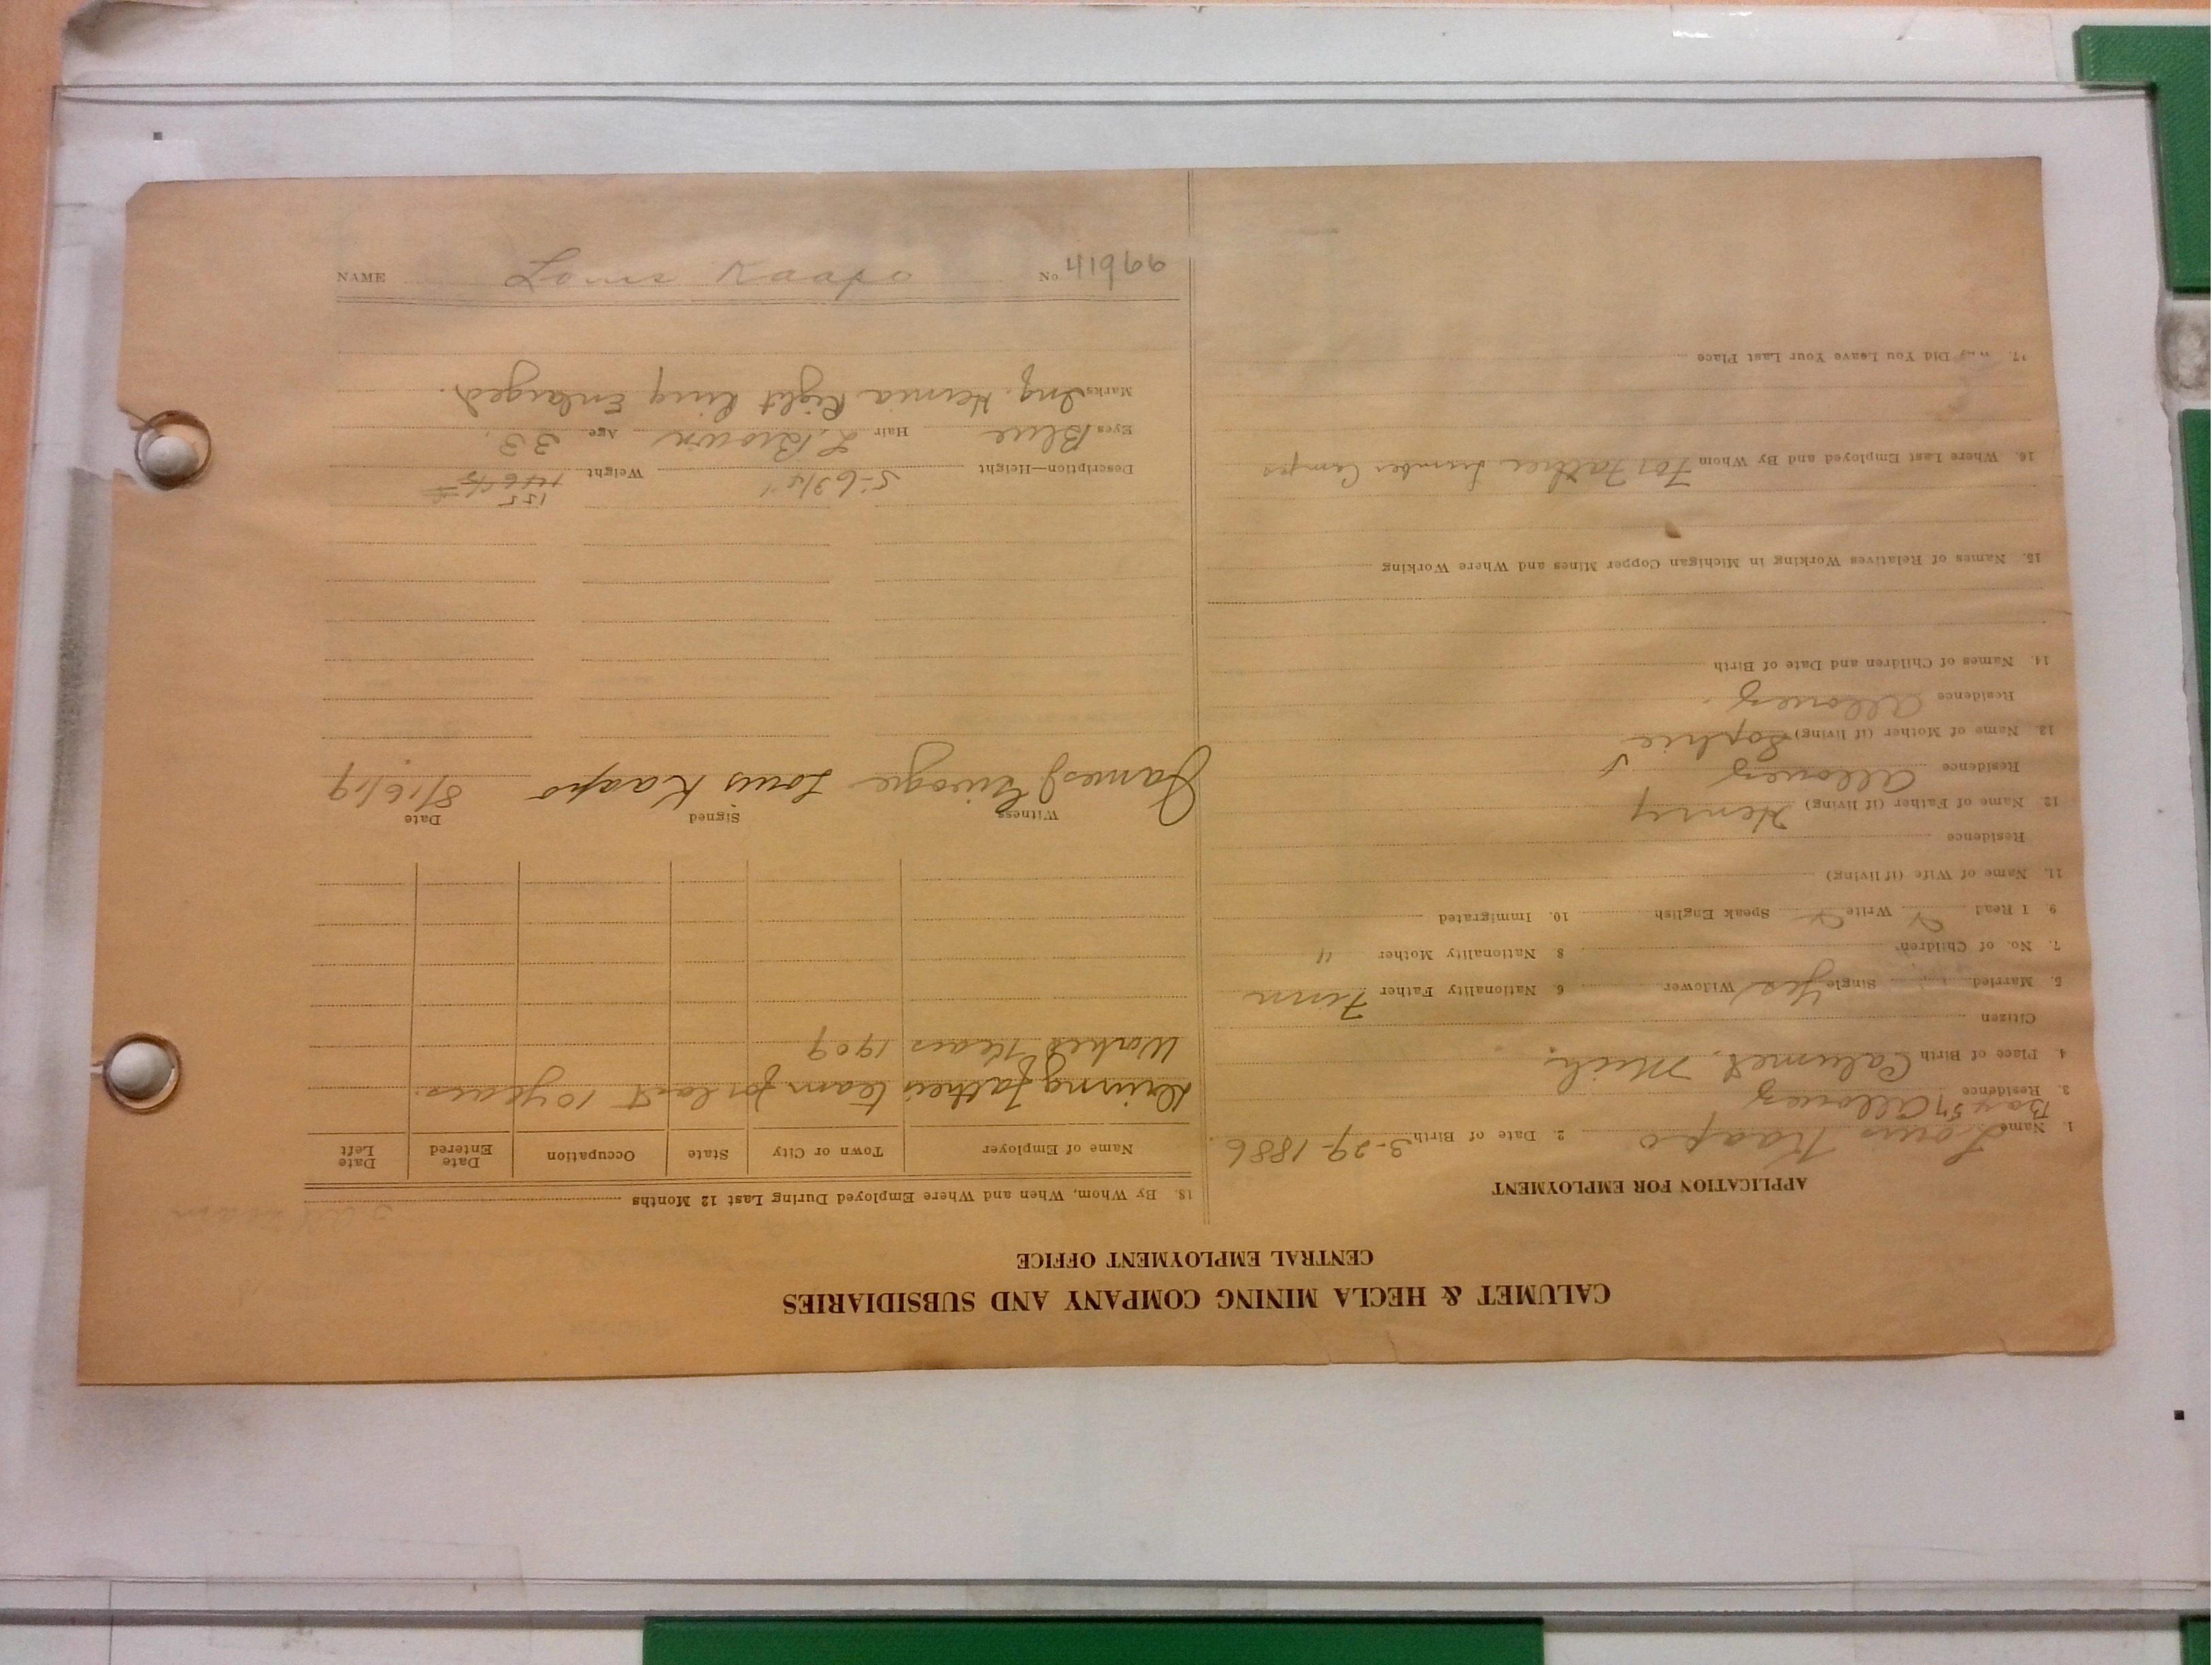 CALUMET & HECLA MINING COMPANY AND SUBSIDIARIES
CENTRAL EMPLOYMENT OFFICE
APPLICATION FOR EMPLOYMENT
1. Name Louis Kaapo 2. Date of Birth 3-29-1886
Box 57 Allouez
3. Residence
4. Place of Birth Calumet, Mich.
Citizen
5. Married Single Yes Widower 6. Nationality Father Finn
7. No. of Children 8. Nationality Mother "
9. I Read Write Speak English 10. Immigrated
11. Name of Wife (if living)
Residence
12. Name of Father (if living) Henry
Residence Allouez
13. Name of Mother (if living) Sophie
Residence Allouez
14. Names of Children and Date of Birth
15. Names of Relatives Working in Michigan Copper Mines and Where Working
16. Where Last Employed and By Whom For Father Lumber Camps
17. Why Did You Leave Your Last Place
18. By Whom, When and Where Employed During Last 12 Months
Name of Employer Town or City State Occupation Date Entered Date Left
Driving fathers team for last 10 years.
Worked 1909
Witness Signed Date
James J Louis Kaapo 8/16/19
155
Description—Height 5-6 3/4" Weight 146
Eyes Blue Hair L. Brown Age 33.
Marks Ing. Hernia Right Ring Enlarged.
NAME Louis Kaapo No 41966